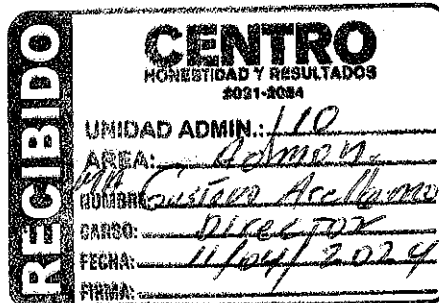 RECIBIDO
CENTRO
HONESTIDAD Y RESULTADOS
2021-2024
UNIDAD ADMIN.: 110
AREA: Admon.
NOMBRE: Gustavo Arellano
CARGO: Director
FECHA: 11/04/2024
FIRMA: